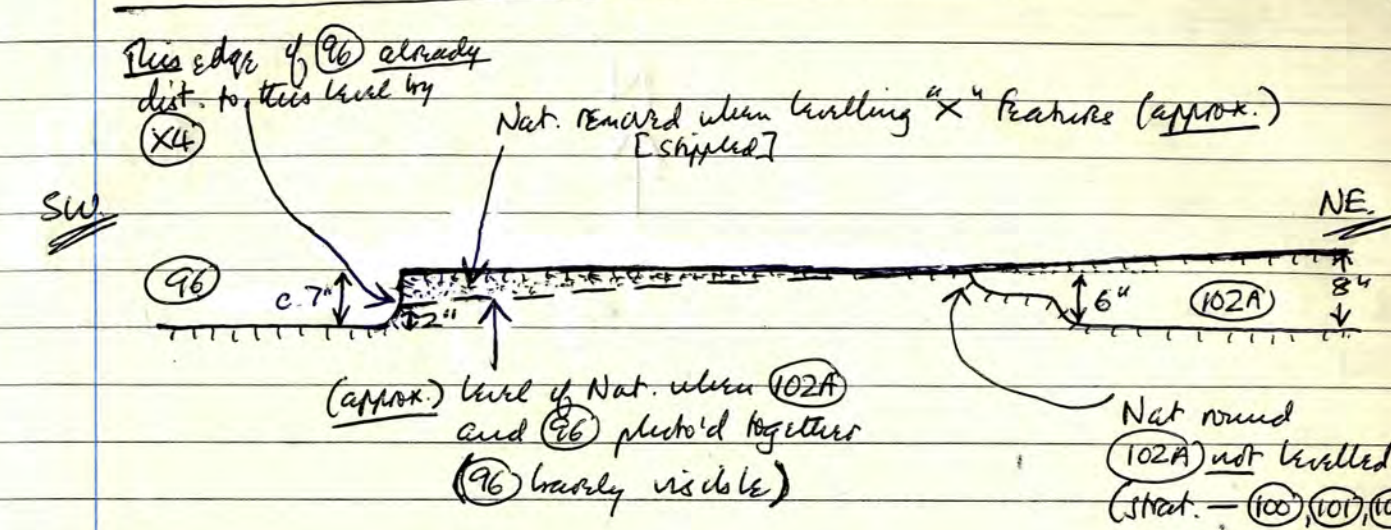 This edge of 96 already
dist. to this level by
X4
Nat. removed when levelling "X" features (approx.)
[stippled]
SW.
NE.
96
c. 7"
2"
6"
102A
8"
(approx.) level of Nat. when 102A
and 96 photo'd together
(96 barely visible)
Nat round
102A not levelled
(strat. — 100, 101,